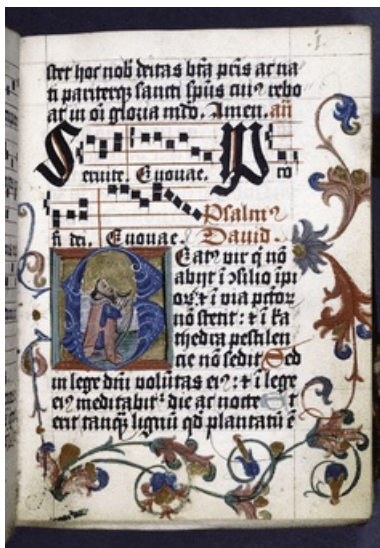 stet hoc nob deitas bta pris ac na
ti pariterq sancti spus cui9 rebo
at in oi gloria mdo. Amen. an
Seruite. Euouae. Pro
fi dei. Euouae. Psalm9
David.
Beat9 vir q nō
abijt ī ꝯsilio īpi
oꝝ ⁊ ī via pctoꝝ
nō stetit: ⁊ ī ka
thedra pestilen
cie nō sedit Sed
in lege dni volūtas ei9: ⁊ ī lege
ei9 meditabit᷑ die ac nocte Et
erit tanq̄ lignū qd plantatū ē